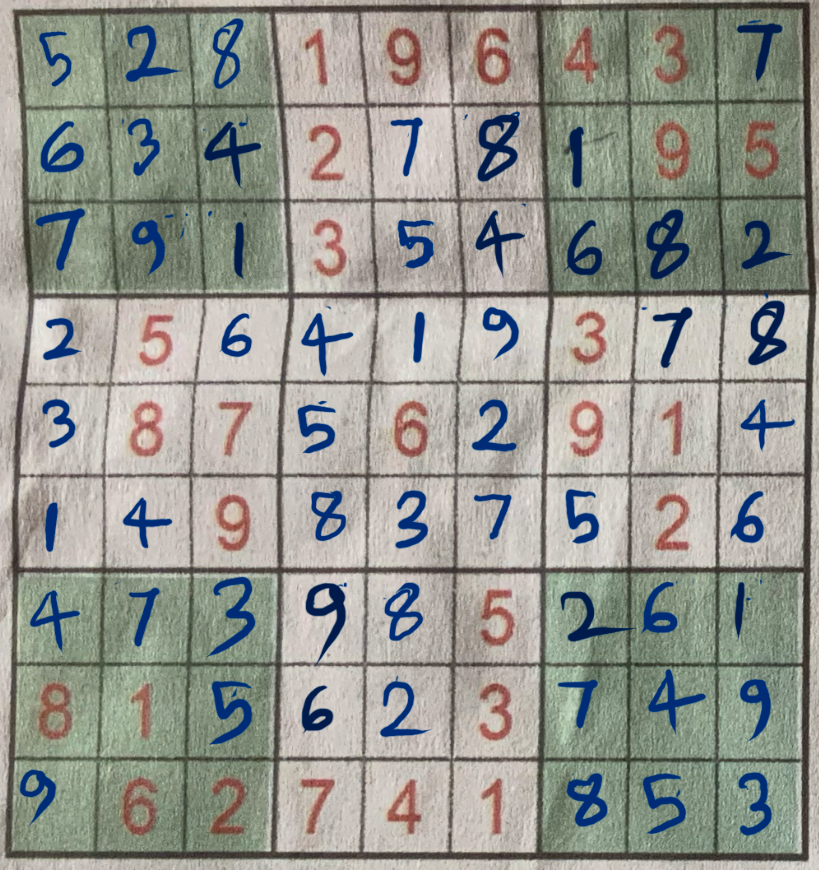 5 2 8 1 9 6 4 3 7
6 3 4 2 7 8 1 9 5
7 9 1 3 5 4 6 8 2
2 5 6 4 1 9 3 7 8
3 8 7 5 6 2 9 1 4
1 4 9 8 3 7 5 2 6
4 7 3 9 8 5 2 6 1
8 1 5 6 2 3 7 4 9
9 6 2 7 4 1 8 5 3